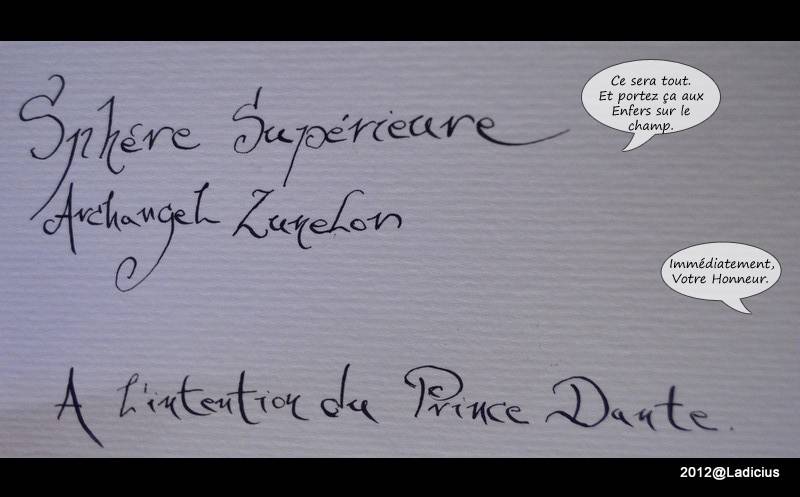 Sphère Supérieure
Archangel Zunelon
Ce sera tout.
Et portez ça aux
Enfers sur le
champ.
Immédiatement,
Votre Honneur.
A l'intention du Prince Dante.
2012@Ladicius